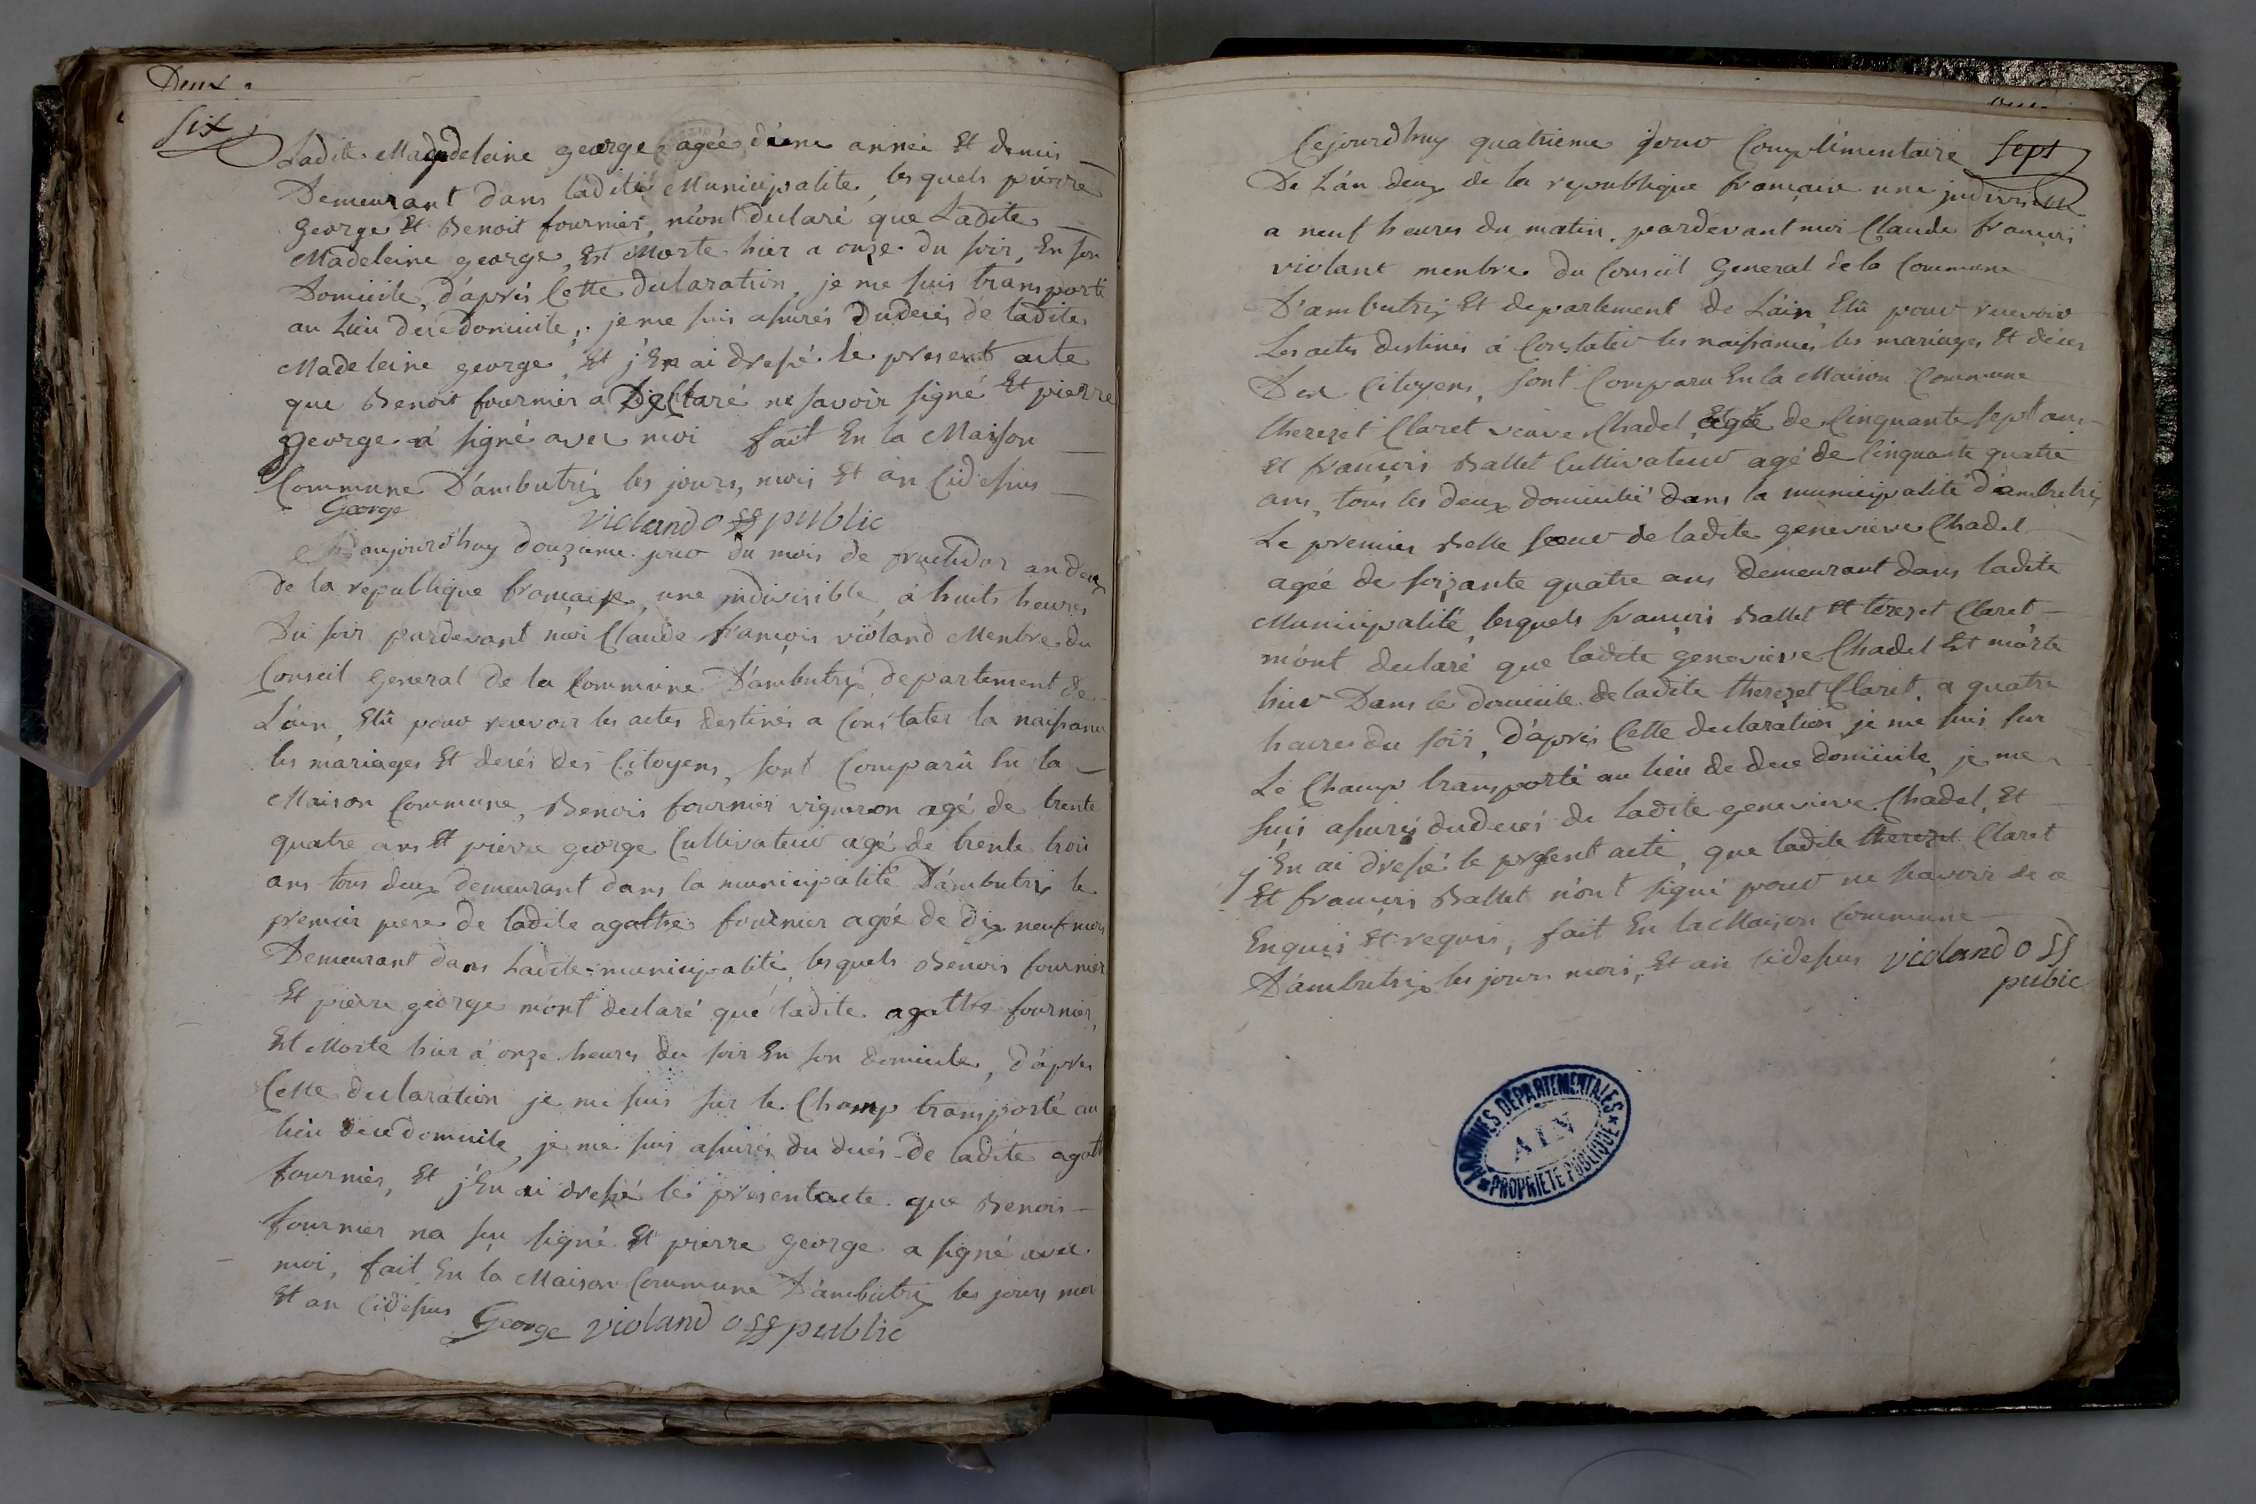 Deux
six
Ladite Magdeleine george agée d'une année Et demis
Demeurant dans ladite Municipalite, lesquels pierre
george Et Benoit fournier, m'ont declaré que Ladite
Madeleine george, Est Morte hier a onze du soir, En son
Domicile, d'aprés Cette declaration, je me suis transporté
au Lieu du domicile, je me suis assurés du deces de ladite
Madeleine george, Et j'En ai dressé le present acte
que Benoit fournier a Declaré ne savoir signé Et pierre
george a signé avec moi fait En la Maison
Commune D'ambutrix les jours, mois Et an Cidessus
George violand off public
aujourd'huy douzieme jour du mois de fructidor an deux
de la republique francaise, une indivisible, á huits heures
Du soir pardevant moi Claude françois violand Menbre du
Conseil General de la Commune D'ambutrix departement de
L'ain, Elû pour recevoir les actes destinés a Constater la naissance
les mariages Et decés des Citoyens, sont Comparû En la
Maison Commune, Benois fournier vigneron agé de trente
quatre ans Et pierre george Cultivateur agé de trente trois
ans tous deux demeurant dans la municipalité D'ambutrix le
premier pere de ladite agathe fournier agée de dix neuf mois
Demeurant dans Ladite municipalité, lesquels Benois fournier
Et pierre george m'ont declaré que ladite agathe fournier,
Est Morte hier á onze heures du soir En son domicile, d'aprés
Cette declaration je me suis sur le Champ transporté au
lieu du domicile, je me suis assurés du decés de ladite agath
fournier, Et j'En ai dressé le present acte que Benois
fournier na su signé Et pierre george a signé avec
moi, fait En la Maison Commune D'ambutrix les jours moi
Et an Cidessus George violand off public
Cejourd'huy quatrieme jour Complimentaire sept
De L'an deux de la republique francaise une indivisible
a neuf heures du matin. pardevant moi Claude françois
violant menbre du Conseil General de la Commune
D'ambutrix Et departement de L'ain, Elû pour recevoir
Les actes destines á Constater les naissances les mariages Et décès
Des Citoyens, sont Comparu En la Maison Commune
therezet Claret veuve Chadel, agée de Cinquante sept ans
Et françois Ballet Cultivateur agé de Cinquante quatre
ans, tous les deux domicilié dans la municipalité d'ambutrix
Le premier Belle soeur de ladite genevieve Chadel
agée de soixante quatre ans Demeurant dans ladite
Municipalité, lesquels françois Ballet Et terezet Claret
m'ont declaré que ladite genevieve Chadel Est morte
hier Dans le domicile de ladite therezet Claret, a quatre
heures du soir, D'aprés Cette declaration, je me suis sur
Le Champ transporté au lieu de du domicile, je me
suis assurés du decés de ladite genevieve Chadel, Et
j'En ai dressé le present acte, que ladite therezet Claret
Et françois Ballet n'ont signé pour ne savoir de ce
Enquis Et requis, fait En la Maison Commune
D'ambutrix les jours mois, Et an cidessus violand off
pubic
ARCHIVES DÉPARTEMENTALES
AIN
PROPRIÉTÉ PUBLIQUE